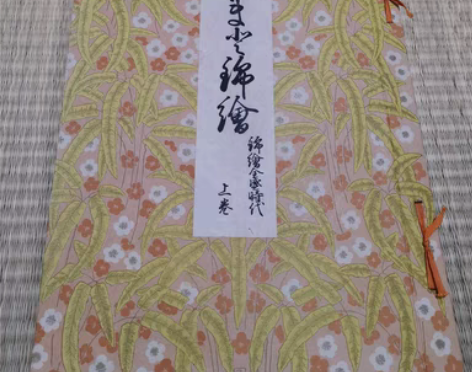 まと錦繪
錦繪全盛時代
上巻